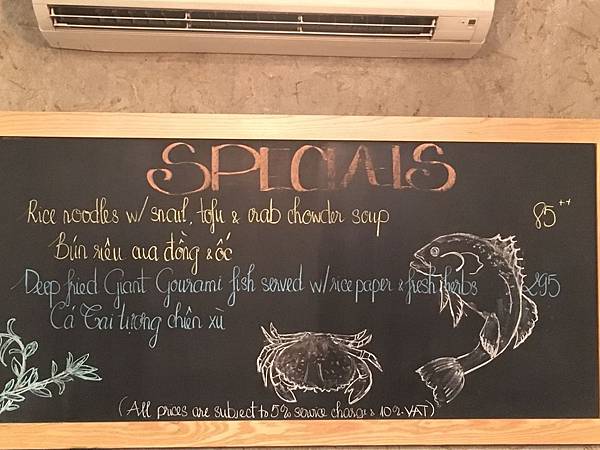 SPECIALS
Rice noodles w/ snail, tofu & crab chowder soup 85++
Bún riêu cua đồng & ốc
Deep fried Giant Gourami fish served w/ rice paper & fresh herbs 295
Cá Tai tượng chiên xù
(All prices are subject to 5% service charge & 10% VAT)